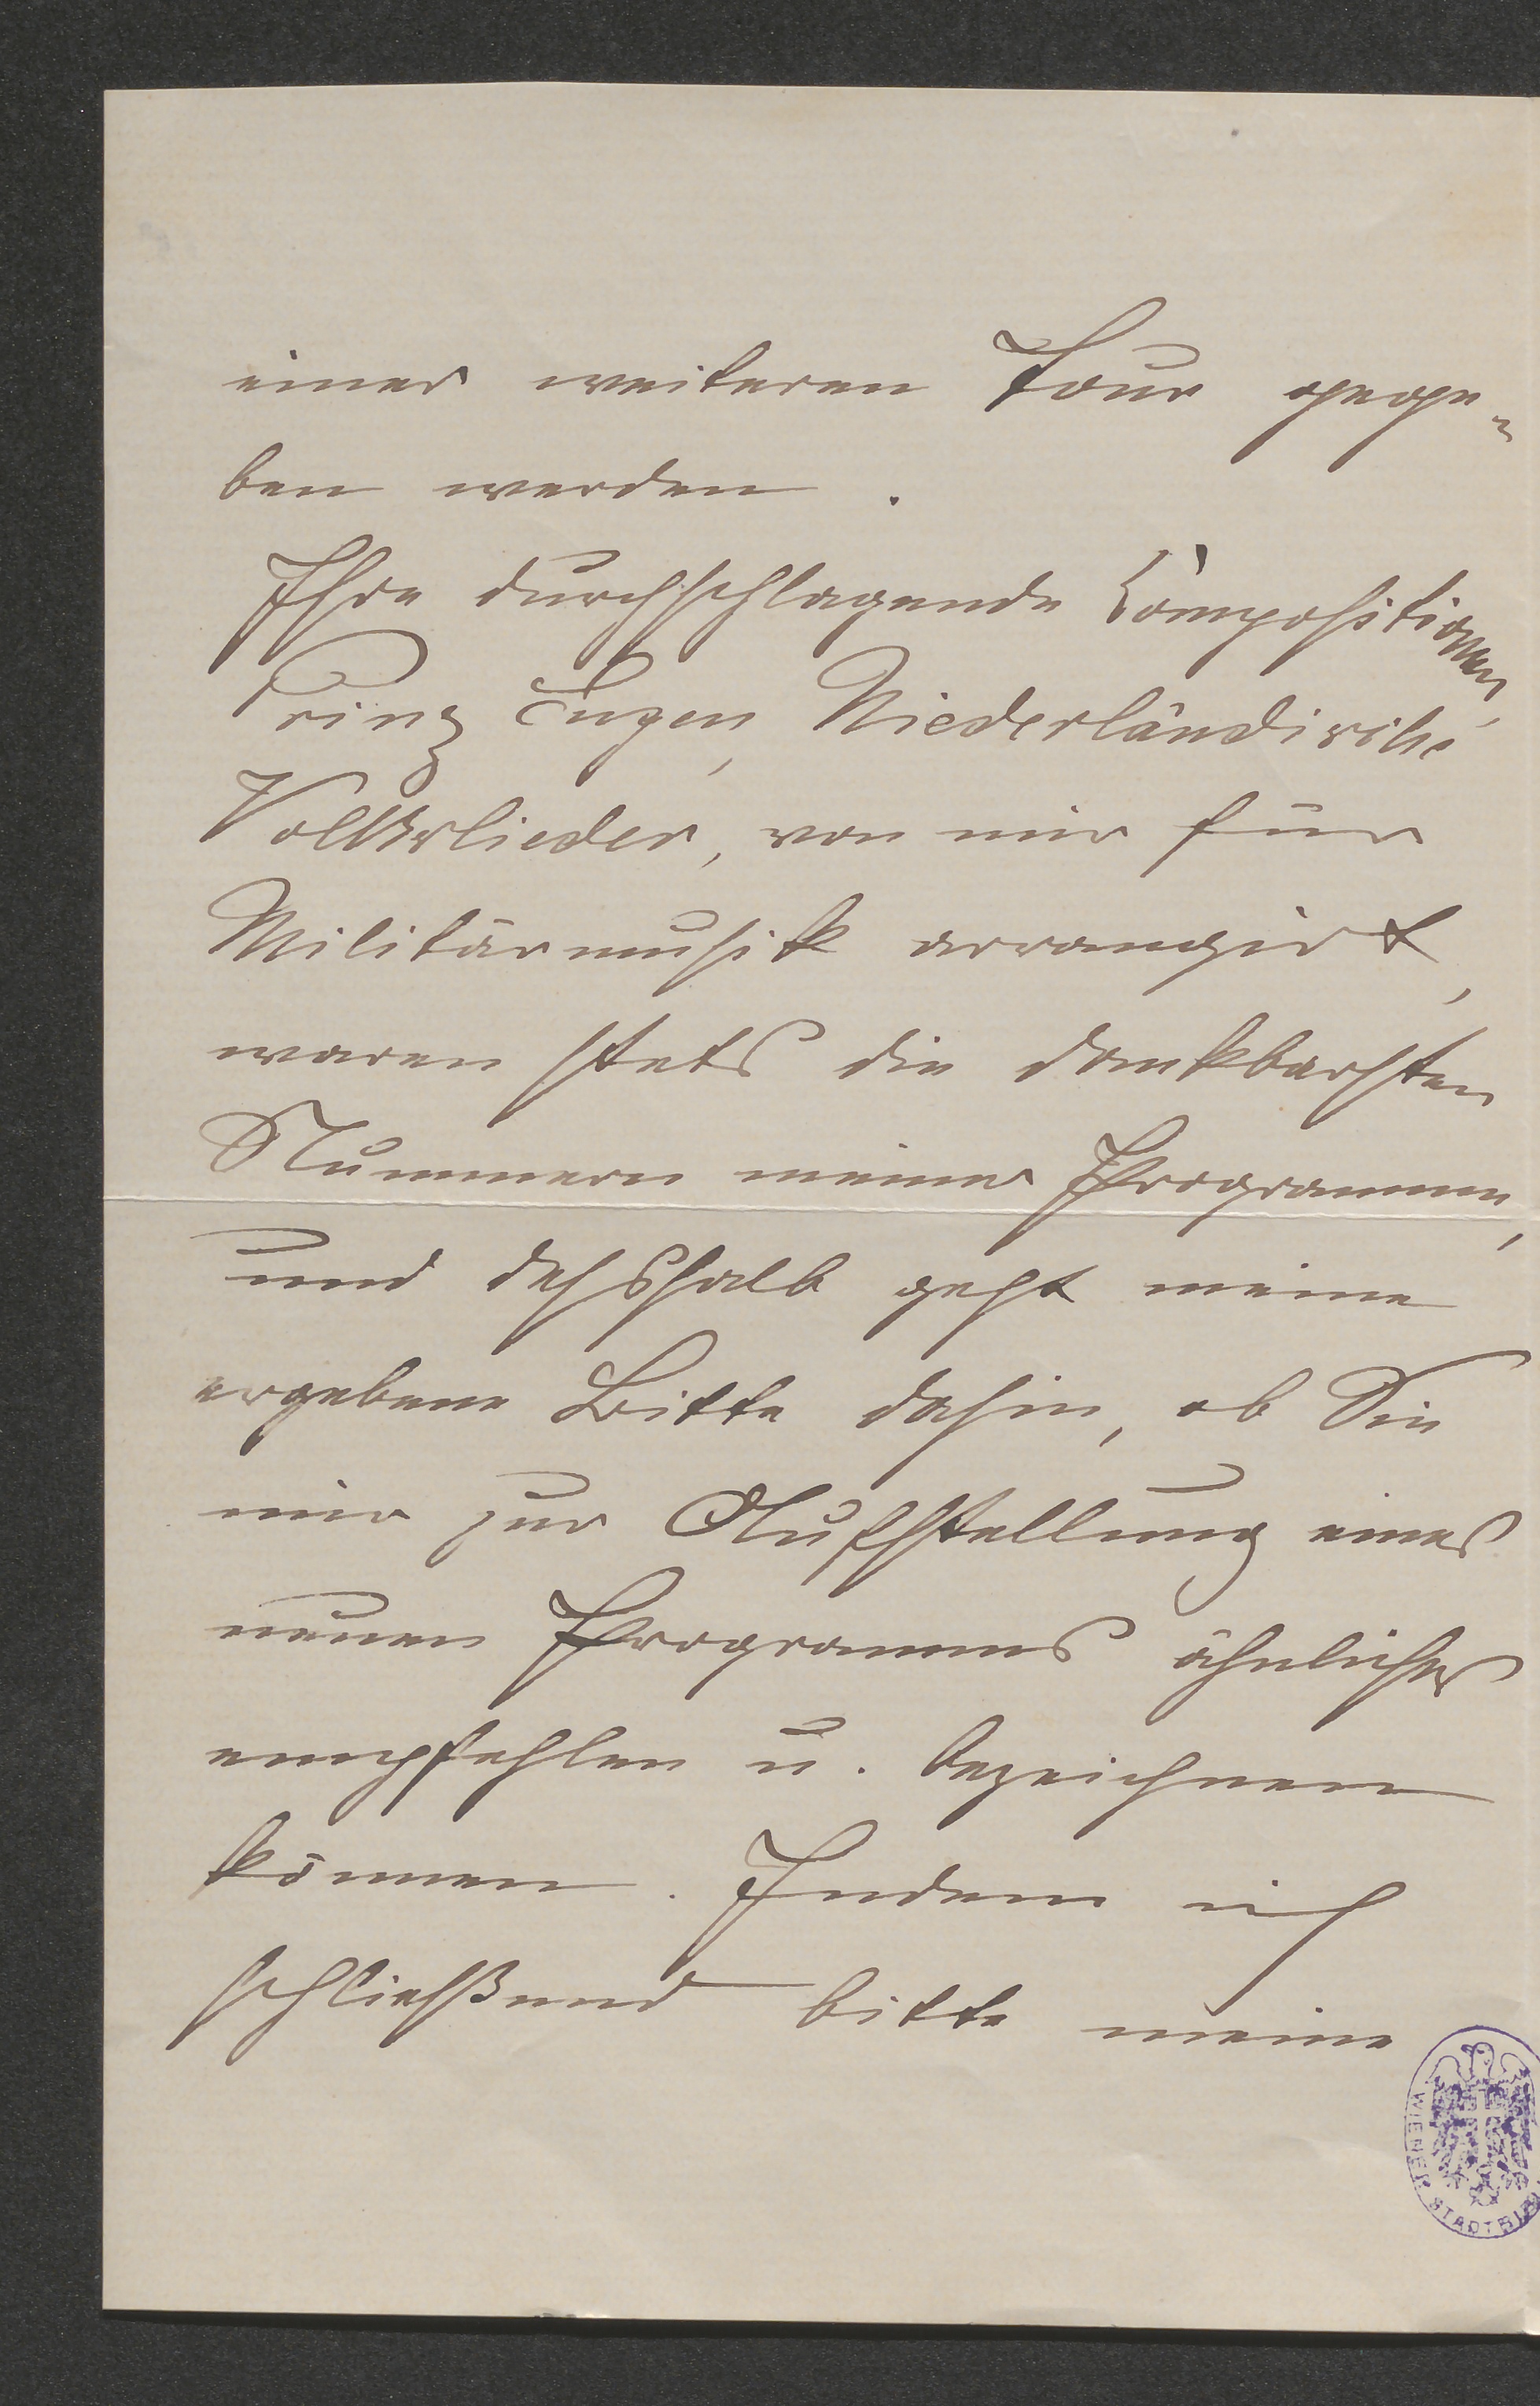 einer weiteren Tour gege-
ben werden.
Ihre durchschlagende Compositionen,
Prinz Eugen, Niederländische
Volkslieder, von mir für
Militärmusik arrangirt,
waren stets die dankbarsten
Nummern meiner Programme,
und desshalb geht meine
ergebene Bitte dahin, ob Sie
mir zur Aufstellung eines
neuen Programms ähnliches
empfehlen u. bezeichnen
können. Indem ich
schließend bitte meine
WIENER STADTBIB